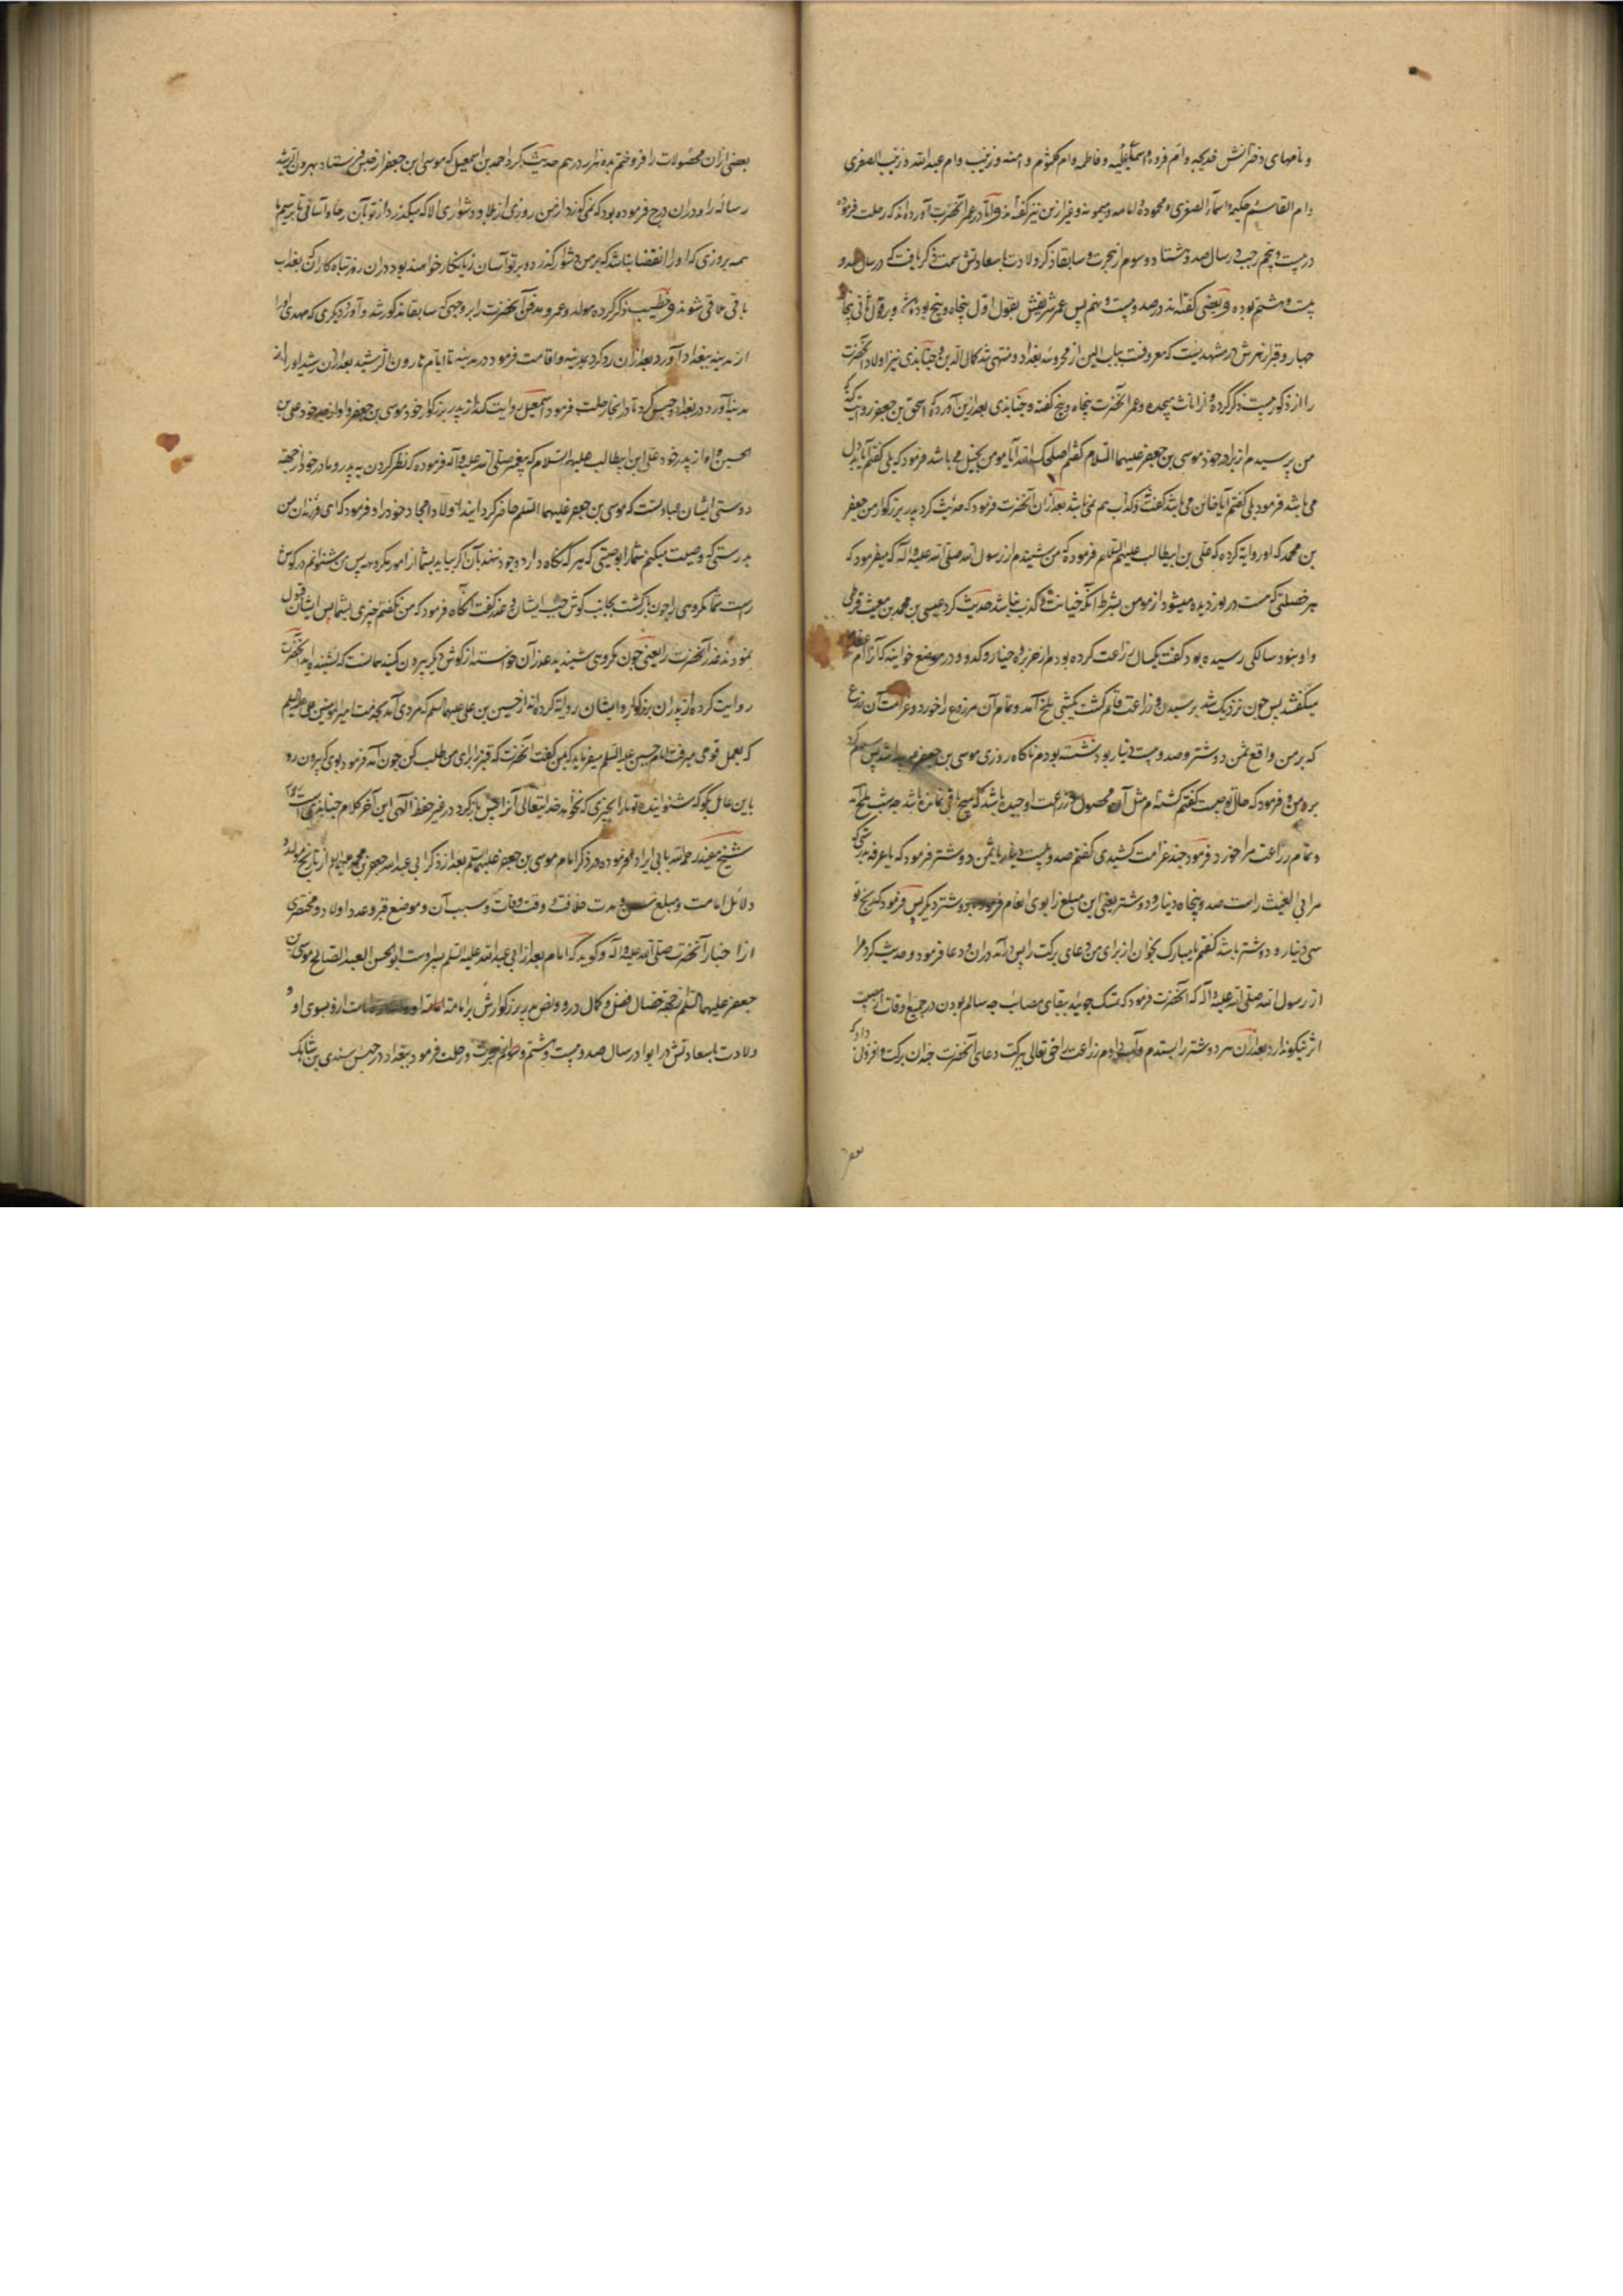 و نامهای دخترانش خدیجه و ام فروه و اسماء و علیه و فاطمه و ام کلثوم و آمنه و زینب و ام عبدالله و زینب الصغری
و ام القاسم و حکیمه و اسماء الصغری و محموده و امامه و میمونه و غیر ازین نیز گفته‌اند و اما در عمر آنحضرت آورده‌اند که رحلت فرموده
در بیست و پنجم رجب در سال صد و هشتاد و سوم از هجرت و سابقا ذکر ولادت با سعادتش سمت ذکر یافت که در سال صد و
بیست و هشتم بوده و بعضی گفته‌اند در صد و بیست و نهم پس عمر شریفش بقول اول پنجاه و پنج بوده و بر قول ثانی پنجاه
چهار و قبر ازهرش در مشهدیست که معروفست بباب التین از محروسه بغداد و منتهی شد کلام کمال الدین و جنابذی نیز اولاد آنحضرت
را از ذکور بیست ذکر کرده و از اناث هیجده و عمر آنحضرت پنجاه و پنج گفته و جنابذی بعد ازین آورده که اسحق بن جعفر روایت کند که
من پرسیدم از برادر خود موسی بن جعفر علیهما السلام گفتم اصلحک الله آیا مومن بخیل می باشد فرمود که بلی گفتم آیا بددل
می باشد فرمود بلی گفتم آیا خائن می باشد گفت نه و کذاب هم نمی باشد بعد از آن آنحضرت فرمود که حدیث کرد پدر بزرگوار من جعفر
بن محمد که او روایة کرده که علی بن ابیطالب علیهم السلام فرموده که من شنیدم از رسول الله صلی الله علیه و آله که میفرمود که
هر خصلتی که هست در نوردیده میشود از مومن بشرط آنکه خیانت و کذب نباشد حدیث کرد عیسی بن محمد بن مغیث قرظی
و او بنود سالگی رسیده بود گفت یکسال زراعت کرده بودم از خربزه و خیار و کدو در موضع جوانیه که آنرا ام عظام
میگفتند پس چون نزدیک شد برسیدن و زراعت قائم گشت یکشبی ملخ آمد و تمام آن مزروع را خورد و غرامت آن زرع
که بر من واقع شد ثمن دو شتر و صد و بیست دینار بود نشسته بودم ناگاه روزی موسی بن جعفر پیدا شد پس سلام کرد
بر من و فرمود که حال تو چیست گفتم گشته‌ام مثل آن محصول زراعت او چیده باشد که هیچ باقی نمانده باشد چه شب ملخ آمد
و تمام زراعت مرا خورد فرمود چند غرامت کشیدی گفتم صد و بیست دینار با ثمن دو شتر فرمود که یا عرفه بدرستی که
مر ابی الغیث راست صد و پنجاه دینار و دو شتر یعنی این مبلغ را بوی انعام فرمود با دو شتر دیگر پس فرمود که ربح تو
سی دینار و دو شتر باشد گفتم یا مبارک بخوان از برای من دعای برکت را پس در آمد در آن و دعا فرمود و حدیث کرد مرا
از رسول الله صلی الله علیه و آله که آنحضرت فرمود که تمسک جوئید ببقای مصائب چه سالم بودن در جمیع اوقات از مصیبت
اثر نیکو ندارد بعد از آن هر دو شتر را بستدم و آب دادم زراعت را حق تعالی ببرکت دعای آنحضرت چندان برکت و افزونی داد که
بعضی
بعضی از آن محصولات را فروختم بده هزار درهم حدیث کرد احمد بن اسمعیل که موسی ابن جعفر از حبس فرستاد بهرون الرشید
رساله را و در آن درج فرموده بود که نمی گذرد از من روزی از بلا و دشواری الا که میگذرد از تو بآن رخاء و آسانی تا برسیم ما
همه بروزی که او را انقضا نباشد که بر من دشوار گذرد و بر تو آسان زیانکار خواهند بود در آن روز تباه کاران که بعذاب
باقی ملاقی شوند و خطیب ذکر کرده مولد و عمر و مدفن آنحضرت را بر وجهی که سابقا مذکور شد و آورد دیگری که مهدی او را
از مدینه ببغداد آورد بعد از آن رد کرد بمدینه و اقامت فرمود در مدینه تا ایام هارون الرشید بعد از آن رشید او را از
مدینه آورد در بغداد و حبس کرد تا در آنجا رحلت فرمود اسمعیل روایت کند از پدر بزرگوار خود موسی بن جعفر و او از پدر خود علی بن
الحسین و او از پدر خود علی ابن ابیطالب علیهم السلام که پیغمبر صلی الله علیه و آله فرموده که نظر کردن به پدر و مادر خود از جهة
دوستی ایشان عبادتست که موسی بن جعفر علیهما السلام حاضر گردانید اولاد امجاد خود را و فرمود که ای فرزندان من
بدرستی که وصیت میکنم شما را بوصیتی که هر که نگاه دارد وجود نهد بآن اگر بیاید بشما از امور مکروهه پس بشنوانم در گوش
راست شما مکروهی را چون بازگشت بجانب گوش چپ ایشان و عذر گفت آنگاه فرمود که من نگفتم چیزی بشما پس ایشان قبول
نمودند عذر آنحضرت را یعنی چون مکروهی شنیدید عذر آن خواسته از گوش دیگر بیرون کنید همانست که نشنیده‌اید آنحضرت
روایت کرده از پدران بزرگوار و ایشان روایة کرده‌اند از حسین بن علی علیهما السلام که مردی آمد بخدمت امیر المومنین علی علیه السلام
که بعمل قومی میرفت امام حسین علیه السلام میفرماید که بمن گفت آنحضرت که قنبر را برای من طلب کن چون آمد فرمود بوی که بیرون رو
باین عامل بگو که شنوانیده تو ما را بچیزی که نخواهد خدایتعالی آنرا پس بازگرد در غیر حفظ الهی این آخر کلام جنابذیست و اما
شیخ مفید رحمه الله بابی ایراد فرموده در ذکر امام موسی بن جعفر علیهما السلام بعد از ذکر ابی عبدالله جعفر بن محمد علیهما السلام از تاریخ مولد و
دلائل امامت و مبلغ سن و مدت خلافت و وقت وفات و سبب آن و موضع قبر و عدد اولاد و مختصری
از اخبار آنحضرت صلی الله علیه و آله و گوید که امام بعد از ابی عبدالله علیه السلام پسر اوست ابوالحسن العبد الصالح موسی بن
جعفر علیهما السلام از جهة خصال فضل و کمال در او و نص پدر بزرگوارش بر امامت او و اشارت از او بسوی او و
ولادت با سعادتش در ابوا در سال صد و بیست و هشتم از هجرت و رحلت فرمود ببغداد در حبس سندی بن شاهک